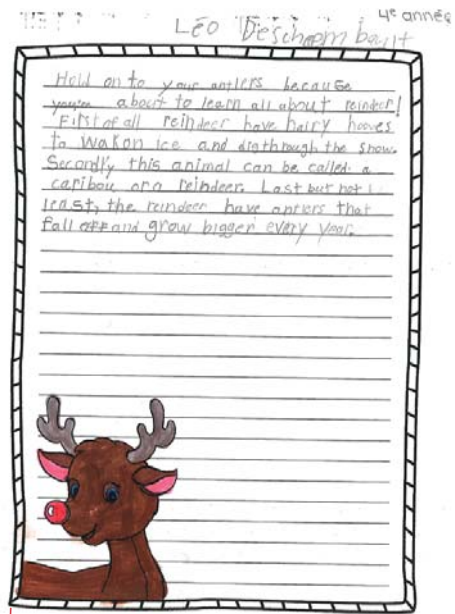 4e année
Léo Deschambault
Hold on to your antlers because
you're about to learn all about reindeer!
First of all reindeer have hairy hooves
to walk on ice and dig through the snow.
Secondly this animal can be called a
caribou or a reindeer. Last but not l
least, the reindeer have antlers that
fall off and grow bigger every year.